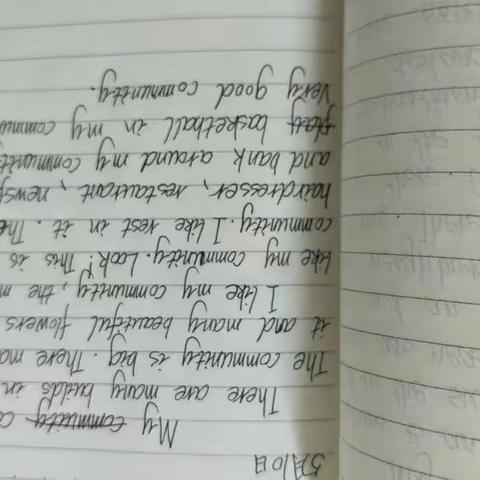 5月10日
My commuity c
There are many builds in
The community is big. There ma
it and many beautiful flowers
I like my community, the m
like my community. Look! This is
community. I like rest in it. The
hairdresser, restaurant, newsp
and bank around my communit
play basketball in my commu
very good community.